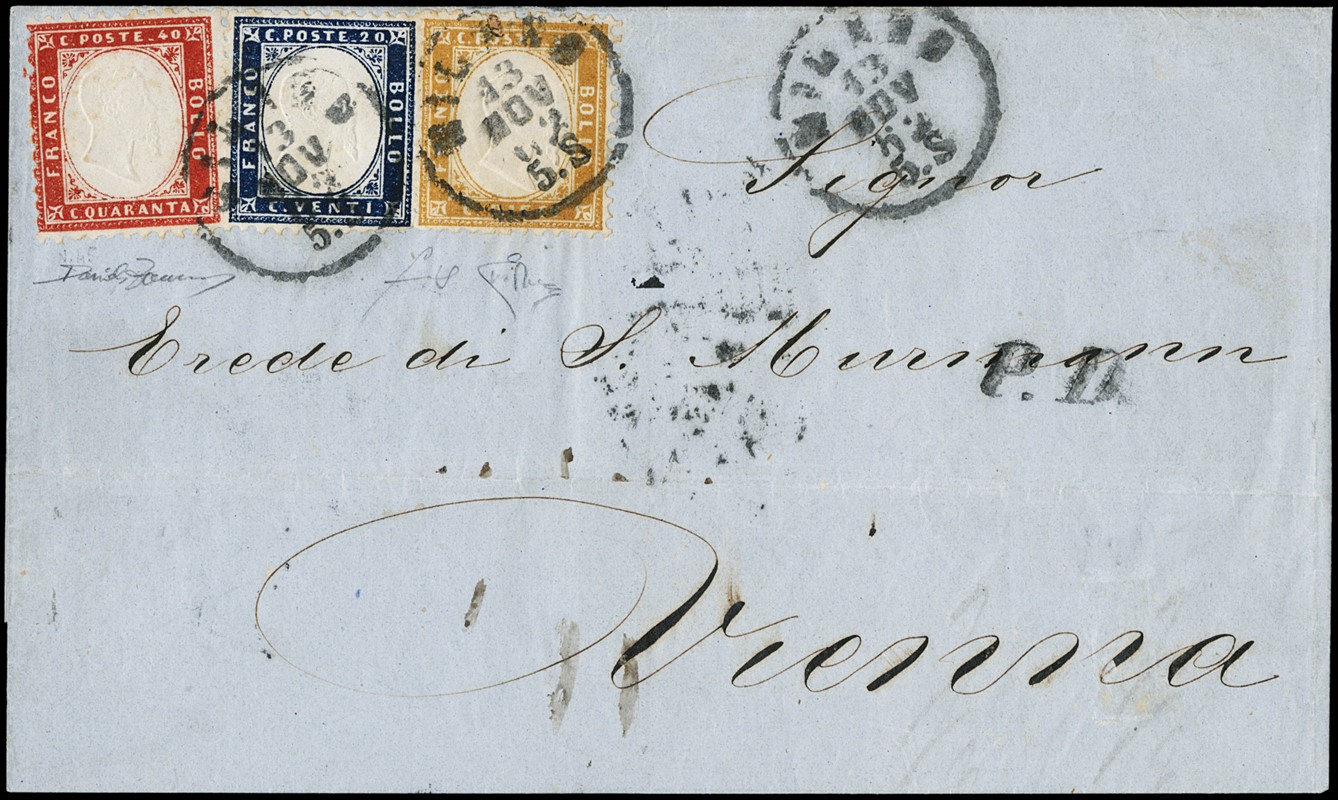 C. POSTE. 40
FRANCO
BOLLO
C. QUARANTA
C. POSTE. 20
FRANCO
BOLLO
C. VENTI.
BOLLO
MILANO
13
NOV
5.S
MILANO
13
NOV
5.S
Signor
Erede di S. Murmann
P.D.
Vienna